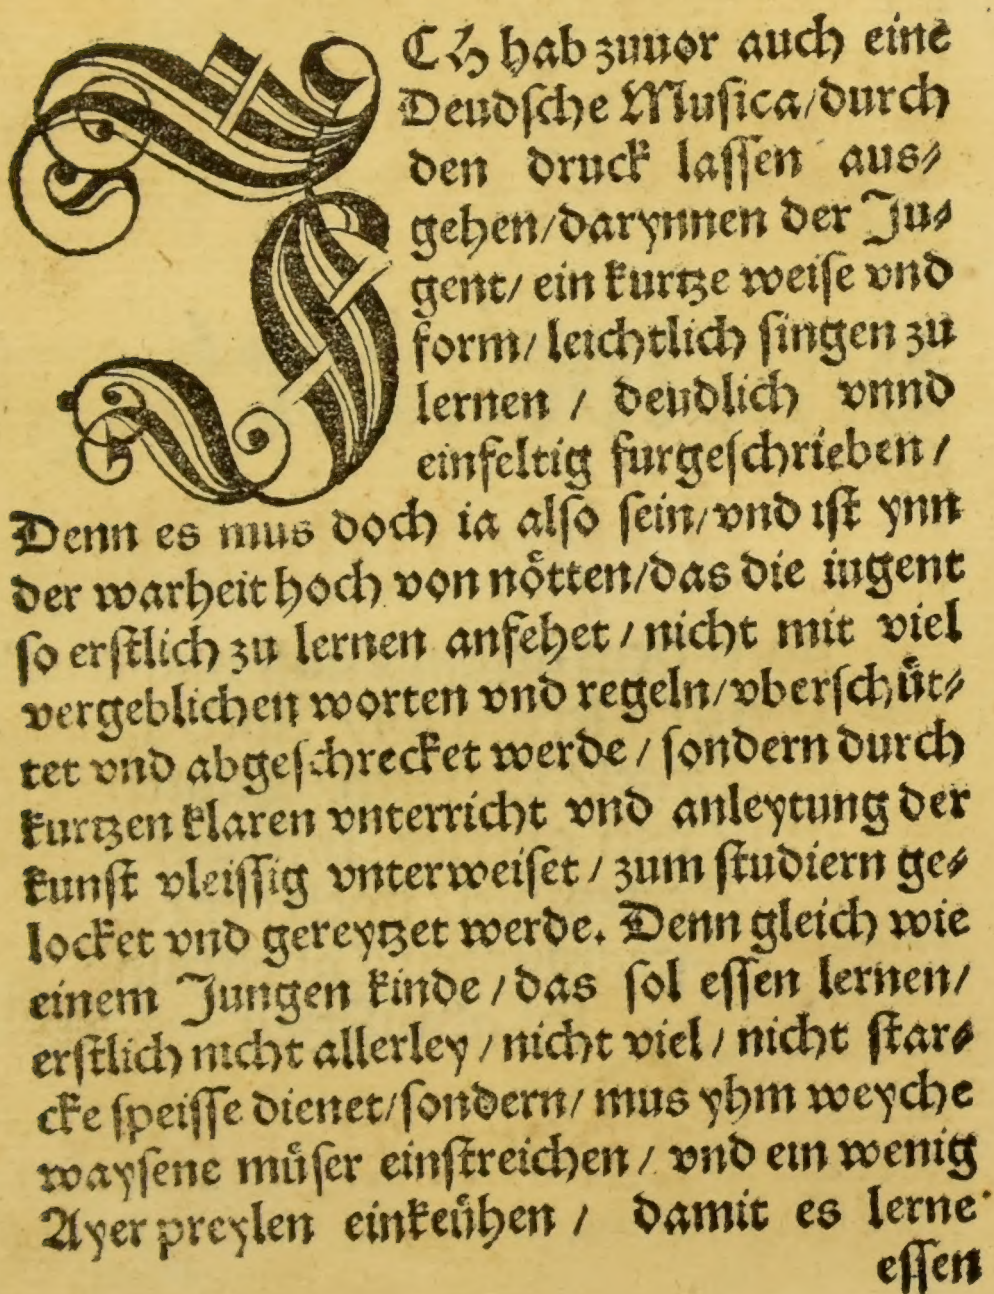 ICH hab zuuor auch eine
Deudſche Muſica/durch
den druck laſſen aus⸗
gehen/darynnen der Ju⸗
gent/ ein kurtze weiſe vnd
form/ leichtlich ſingen zu
lernen / deudlich vnnd
einfeltig furgeſchrieben /
Denn es mus doch ia alſo ſein/vnd iſt ynn
der warheit hoch von noͤtten/das die iugent
ſo erſtlich zu lernen anfehet / nicht mit viel
vergeblichen worten vnd regeln/vberſchuͤt⸗
tet vnd abgeſchrecket werde / ſondern durch
kurtzen klaren vnterricht vnd anleytung der
kunſt vleiſſig vnterweiſet / zum ſtudiern ge⸗
locket vnd gereytzet werde. Denn gleich wie
einem Jungen kinde / das ſol eſſen lernen/
erſtlich nicht allerley / nicht viel / nicht ſtar⸗
cke ſpeiſſe dienet/ſondern/ mus yhm weyche
wayſene muͤſer einſtreichen / vnd ein wenig
Ayer preylen einkeuͤhen / damit es lerne
eſſen